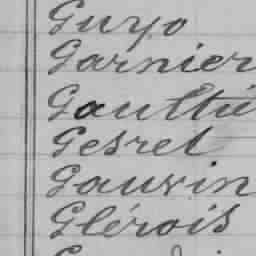 Guyo
Garnier
Gaultie
Gesret
Gauvin
Glérois